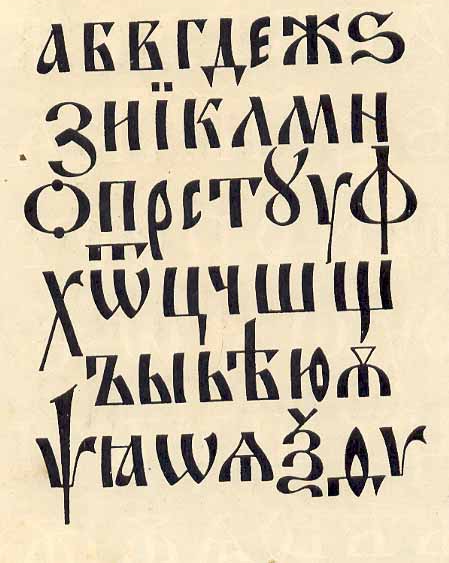 АБВГДЕЖЅ
ЗИЇКЛМН
ОПРСТꙋУФ
ХѾЦЧШЩ
ЪЫЬѢЮѪ
ѰꙖѠѦѮДѴ